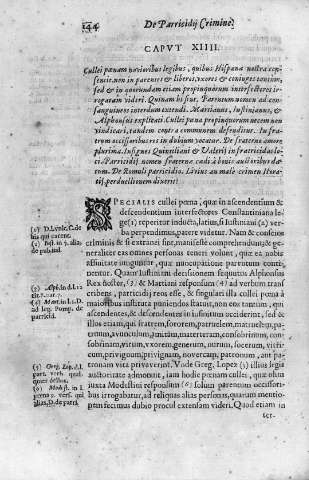 144 De Parricidij Crimine.
CAPVT XIIII.
Cullei pœnam varioribus legibus, quibus Hispana nostra con-
senserunt in parentes & liberos, vxores & coniuges tantum,
sed & in quorundam etiam propinquorum interfectores ir-
rogatam videri. Quinam hi sint. Parentum nomen ad con-
sanguineos interdum extendi. Martianus, Iustinianus, &
Alphonsus explicati. Cullei pœna propinquorum necem non
vindicari, tandem contra communem defenditur. In fra-
trum occisoribus res in dubium vocatur. De fraterno amore
plurima. Insignes Quintiliani & Valerij in fratricidas lo-
ci. Parricidij nomen fraternæ cædi à bonis auctoribus da-
tum. De Romuli parricidio. Livius an malè crimen Hora-
tij perduellionem dixerit.
SPECIALIS cullei pœna, quæ in ascendentium &
descendentium interfectores Constantiniana le-
ge (1) reperitur inducta, latius, si Iustiniani (2) ver-
ba perpendimus, patere videtur. Nam & conscios
criminis & si extranei sint, manifestè comprehendunt, & ge-
neraliter eos omnes personas teneri volunt, quæ ex nobis
affinitate iunguntur, quæ nuncupatione parentum conti-
nentur. Quam Iustiniani decisionem sequutus Alphonsus
Rex noster, (3) & Martiani responsum (4) ad verbum trans-
cribens, parricidij reos esse, & singulari illa cullei pœna à
maioribus instituta puniendos statuit, non eos tantum, qui
ascendentes, & descendentes in infinitum occiderint, sed &
illos etiam, qui fratrem, sororem, patruelem, matruelem, pa-
truum, avunculum, amitam, materteram, consobrinum, con-
sobrinam, virum, vxorem, generum, nurum, socerum, vitri-
cum, privignum, privignam, novercam, patronum, aut pa-
tronam vita privaverint. Vnde Greg. Lopez (5) illius legis
authoritate admonuit, iam hodie pœnam cullei, quæ olim
iuxta Modestini responsum (6) solum parentum occisori-
bus irrogabatur, ad reliquas alias personas, quarum mentio-
nem fecimus dubio procul extensam videri. Quod etiam in
(1) D.l.vnic. C. de
his qui parent.
(2) Inst. in §. alia,
de pub. iud.
(3) Alph. in d.l. 12
tit. 8. par. 7.
(4) Mart. in l. 1. D.
ad leg. Pomp. de
parricid.
(5) Greg. Lop. d. l.
part. verb.
(6) Modest. in l.
pœna 9. vers. qui
alias, D. de parri.